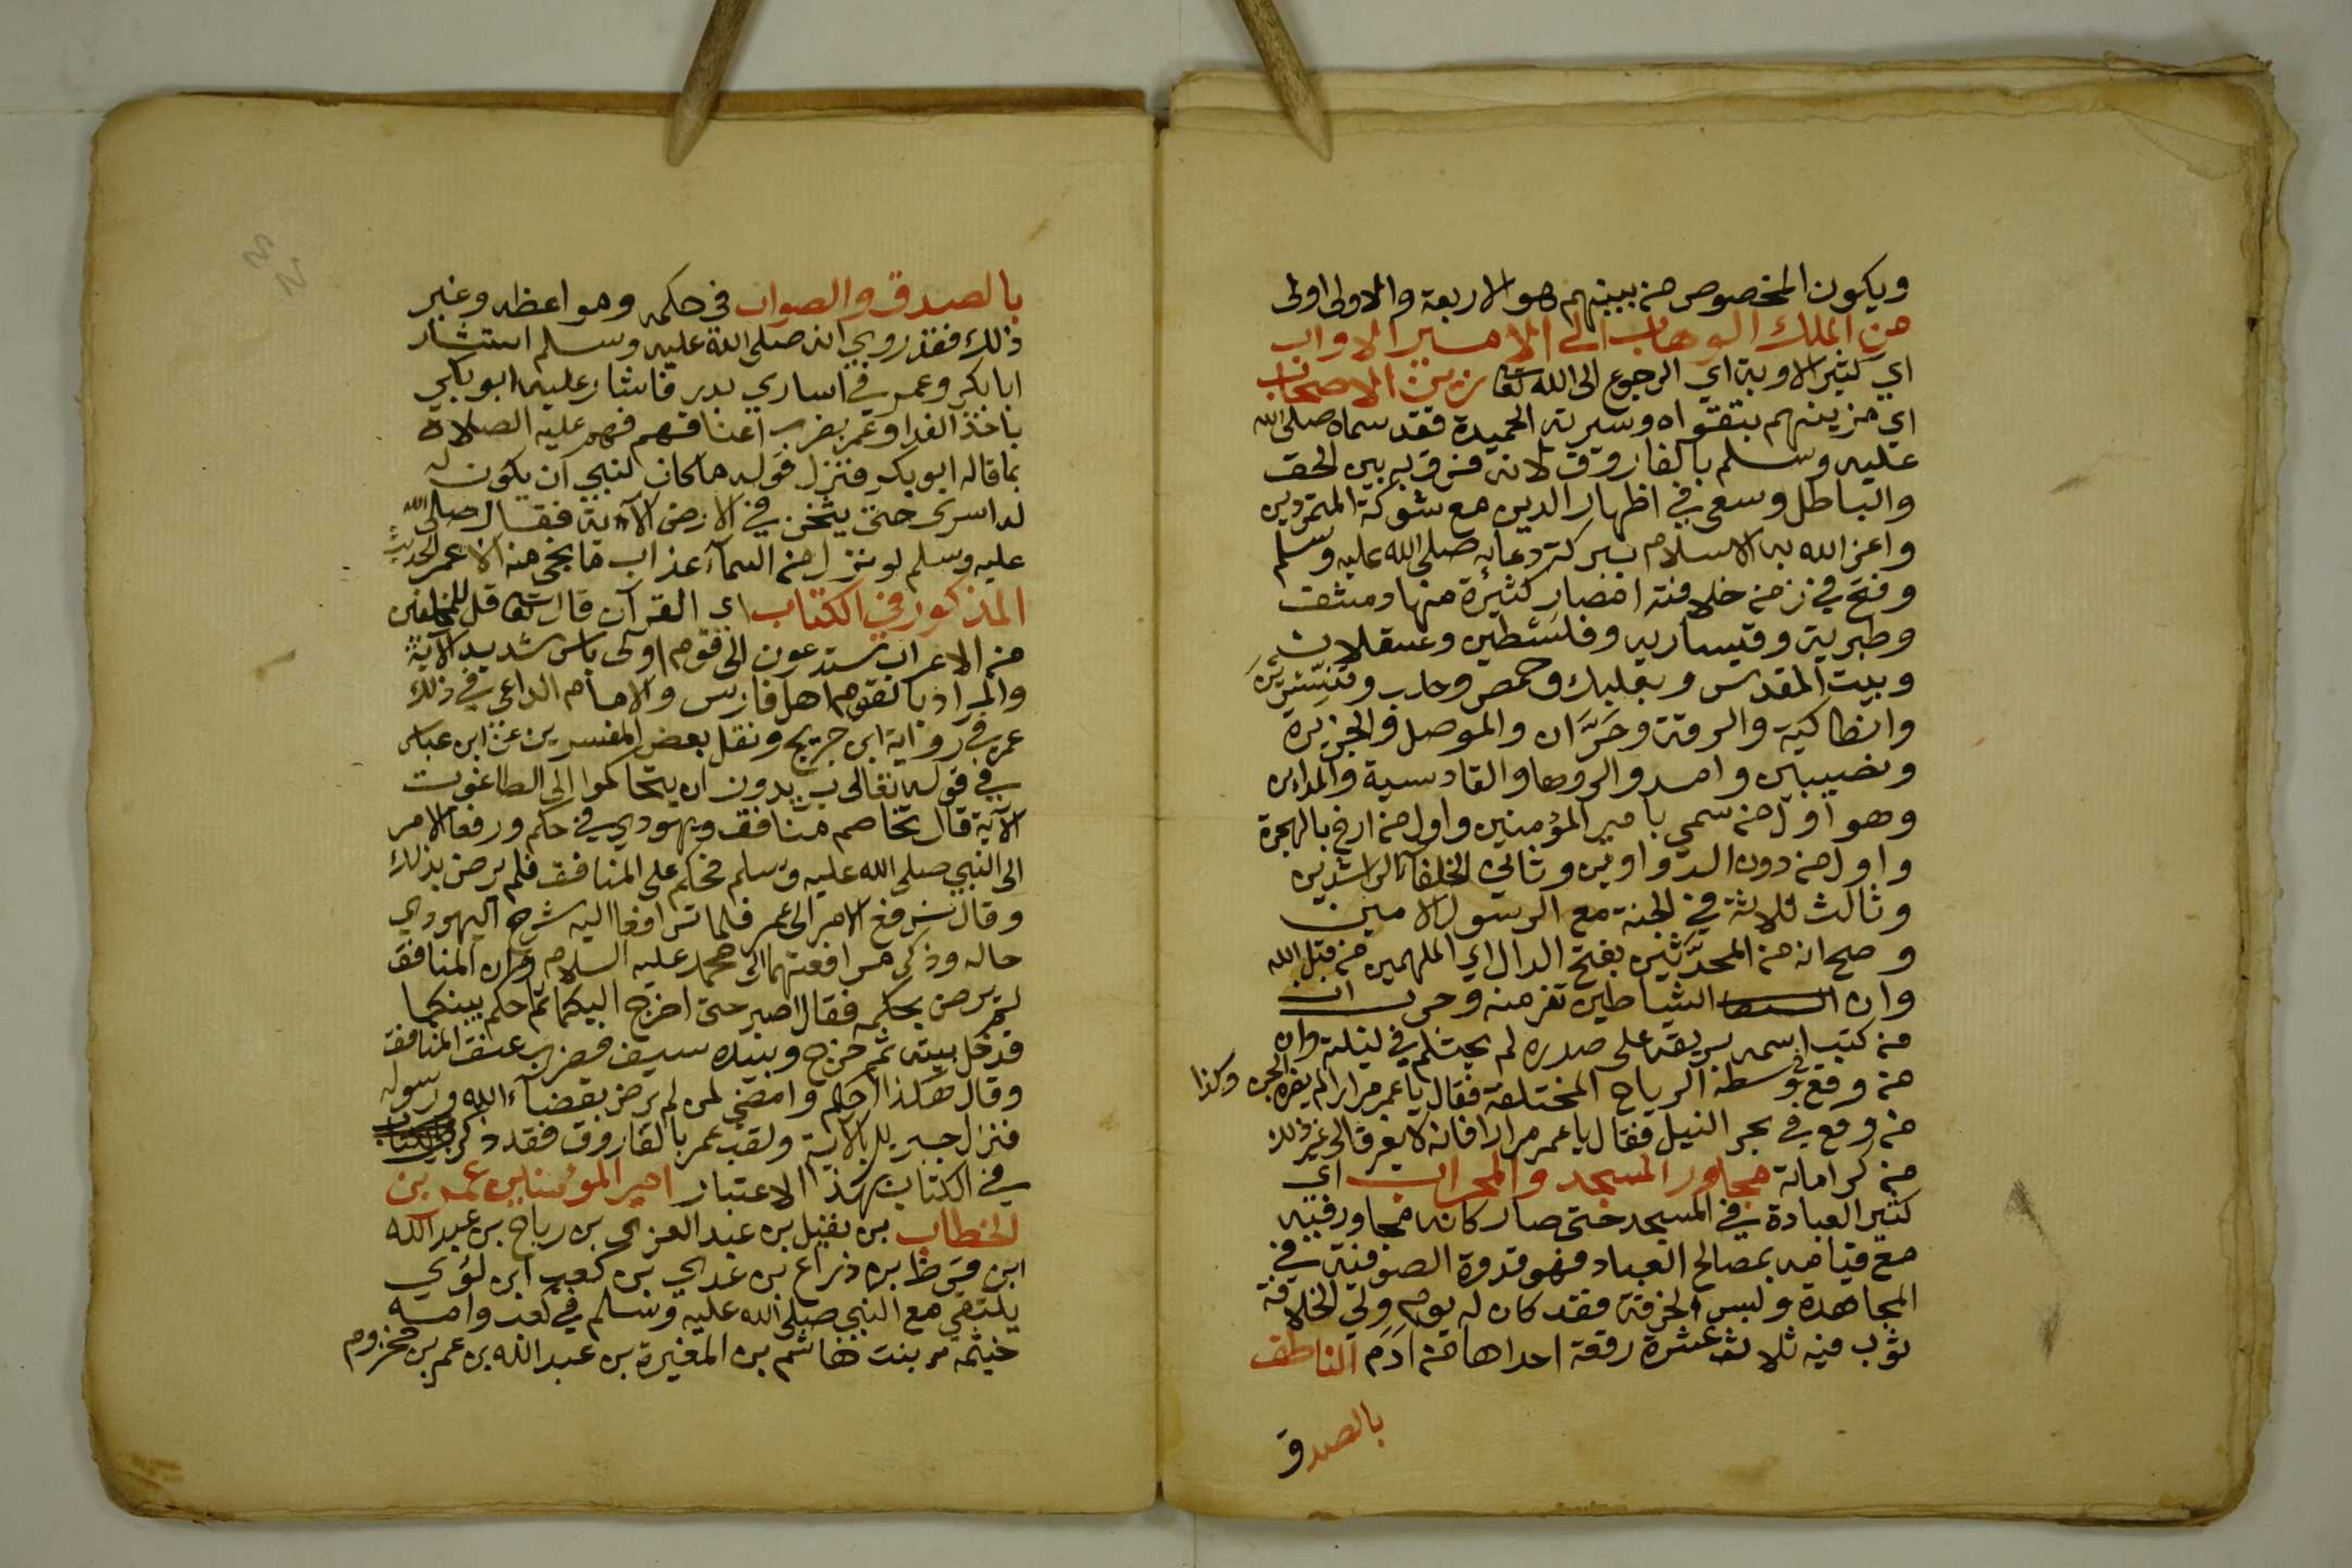 ويكون المخصوص من بينهم هو الاربعة والاولى اولى
من الملك الوهاب الى الامير الاواب
اي كثير الاوبة اي الرجوع الى الله تعا زين الاصحاب
اي مزينهم بتقواه وسيرته الحميدة فقد سماه صلى الله
عليه وسلم بالفاروق لانه فرق به بين الحق
والباطل وسعى في اظهار الدين مع شوكة المتمردين
واعز الله به الاسلام ببركة دعايه صلى الله عليه وسلم
وفتح في زمن خلافته امصار كثيرة منها دمشق
وطبرية وقيسارية وفلسطين وعسقلان
وبيت المقدس وبعلبك وحمص وحلب وقنسرين
وانطاكية والرقة وحران والموصل والجزيرة
ونصيبين وامد والروها والقادسية والمداين
وهو اول من سمي بامير المؤمنين واول من ارخ بالهجرة
واول من دون الدواوين وثاني الخلفآ الراشدين
وثالث ثلاثة في الجنة مع الرسول الامين
وصح انه من المحدثين بفتح الدال اي الملهمين من قبل الله
وان الشياطين تفر منه وجرب ان
من كتب اسمه بريقه على صدره لم يحتلم في ليلته وان
من وقع في وسطه الرياح المختلفة فقال يا عمر مرارا لم يضره الجن وكذا
من وقع في بحر النيل فقال يا عمر مرارا فانه لا يغرق الى غير ذلك
من كراماته مجاور المسجد والمحراب اي
كثير العبادة في المسجد حتى صار كانه مجاور فيه
مع قيامه بمصالح العباد فهو قدوة الصوفية في
المجاهدة ولبس الخرقة فقد كان له يوم ولي الخلافة
ثوب فيه ثلاث عشرة رقعة احداها من ادم الناطق
بالصدق
بالصدق والصواب في حكمه وهو اعظه وغير
ذلك فقد روي انه صلى الله عليه وسلم استشار
ابا بكر وعمر في اساري بدر فاشار عليه ابو بكر
باخذ الفدا وعمر بضرب اعناقهم فهم عليه الصلاة
بما قاله ابو بكر فنزل قوله ما كان لنبي ان يكون له
له اسرى حتى يثخن في الارض الآية فقال صلى الله
عليه وسلم لو نزل من السمآء عذاب ما نجى منه الا عمر الحديث
المذكور في الكتاب اي القرآن قال تعا قل للمخلفين
من الاعراب ستدعون الى قوم اولى باس شديد الآية
والمراد بالقوم اهل فارس والامام الداعي في ذلك
عمر في رواية ابن جريج ونقل بعض المفسرين عن ابن عباس
في قوله تعالى يريدون ان يتحاكموا الى الطاغوت
الآية قال تخاصم منافق ويهودي في حكم ورفعا الامر
الى النبي صلى الله عليه وسلم فحكم على المنافق فلم يرض بذلك
وقال نرفع الامر الى عمر فلما ترافعا اليه شرح اليهودي
حاله وذكر مرافعتهما الى محمد عليه السلام وان المنافق
لم يرض بحكمه فقال اصبر حتى اخرج اليكما ثم احكم بينكما
فدخل بيته ثم خرج وبيده سيف فضرب عنق المنافق
وقال هكذا احكم وامضي لمن لم يرض بقضآء الله ورسوله
فنزل جبريل بالآية ولقب عمر بالفاروق فقد ذكر
في الكتاب بهذا الاعتبار امير المؤمنين عمر بن
الخطاب بن نفيل بن عبد العزى بن رياح بن عبد الله
ابن قرط بن رزاح بن عدي بن كعب ابن لؤي
يلتقي مع النبي صلى الله عليه وسلم في كعب وامه
خيثمه بنت هاشم بن المغيرة بن عبد الله بن عمر بن مخزوم